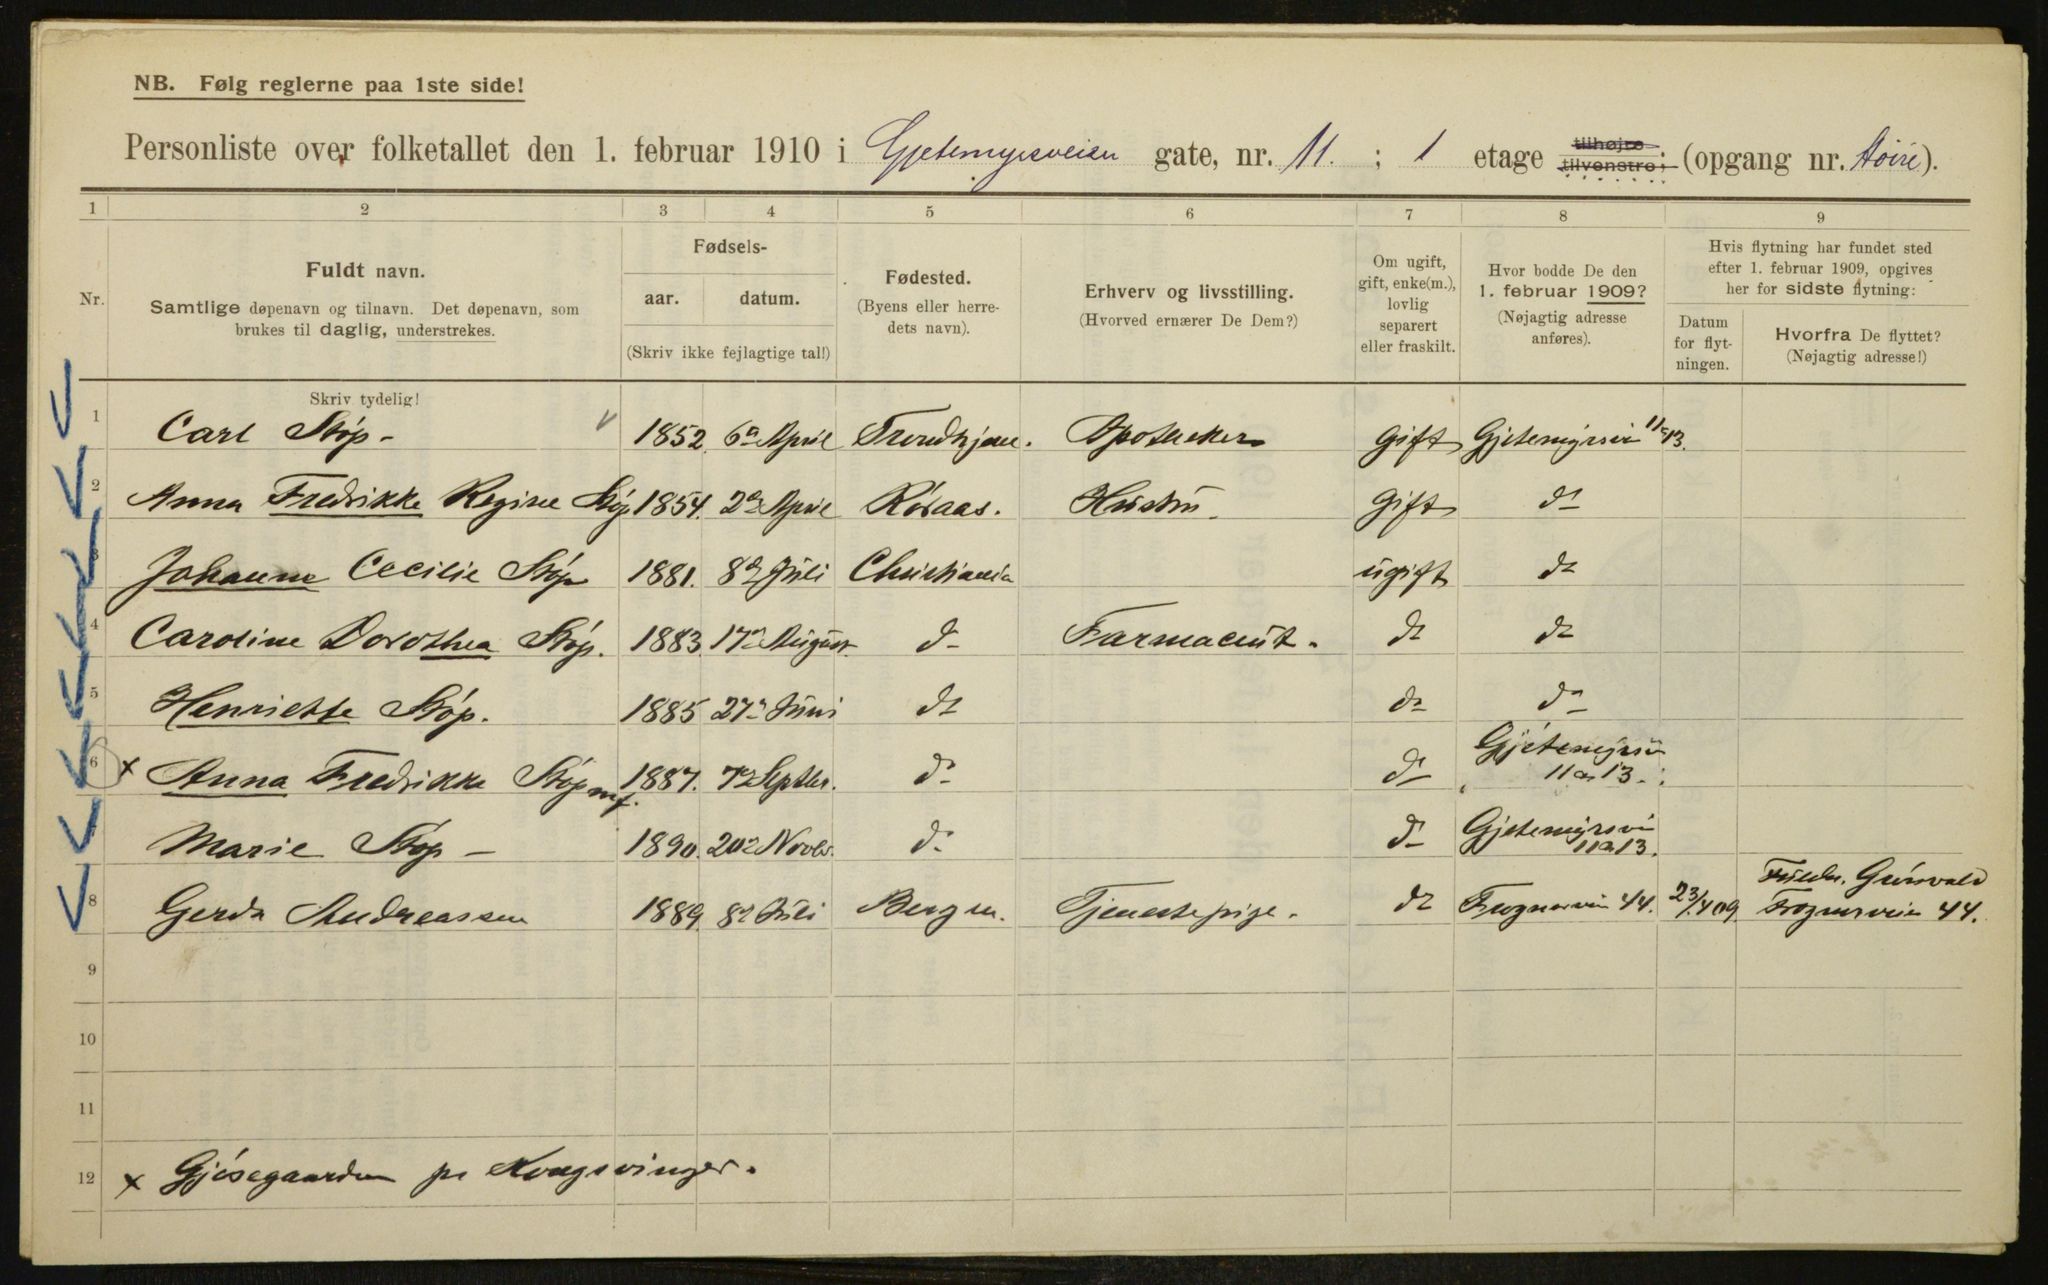 NB. Følg reglerne paa 1ste side!
Personliste over folketallet den 1. februar 1910 i Gjetemyrsveien gate, nr. 11. ; 1 etage tilhøjre tilvenstre; (opgang nr. Høire).
1 2 3 4 5 6 7 8 9
Nr.
Fuldt navn.
Samtlige døpenavn og tilnavn. Det døpenavn, som
brukes til daglig, understrekes.
Fødsels-
aar. datum.
(Skriv ikke fejlagtige tal!)
Fødested.
(Byens eller herre-
dets navn).
Erhverv og livsstilling.
(Hvorved ernærer De Dem?)
Om ugift,
gift, enke(m.),
lovlig
separert
eller fraskilt.
Hvor bodde De den
1. februar 1909?
(Nøjagtig adresse
anføres).
Hvis flytning har fundet sted
efter 1. februar 1909, opgives
her for sidste flytning:
Datum
for flyt-
ningen.
Hvorfra De flyttet?
(Nøjagtig adresse!)
Skriv tydelig!
1 Carl Støp - 1852. 6 April Trondhjem. Apotheker Gift Gjetemyrsvei 11 a 13.
2 Anna Fredrikke Regine Støp 1854. 2 April Röraas. Hustru. Gift do
3 Johanne Cecilie Støp 1881. 8 Juli Christiania ugift do
4 Caroline Dorothea Støp. 1883. 17 August do Farmaceut. do do
5 Henriette Støp. 1885 27 Juni do do do
6 x Anna Fredrikke Støp mf. 1887. 7 Septbr. do do Gjetemyrsvei
11 a 13.
Marie Støp - 1890. 20 Novbr. do do Gjetemyrsvei
11 a 13.
8 Gerda Andreassen 1889. 8 Juli Bergen. Tjenestepige. do Frognerveien 44. 23/4 09 Grünvald
Frognerveien 44.
9
10
11
12 x Gjøsegaarden pr Kongsvinger.